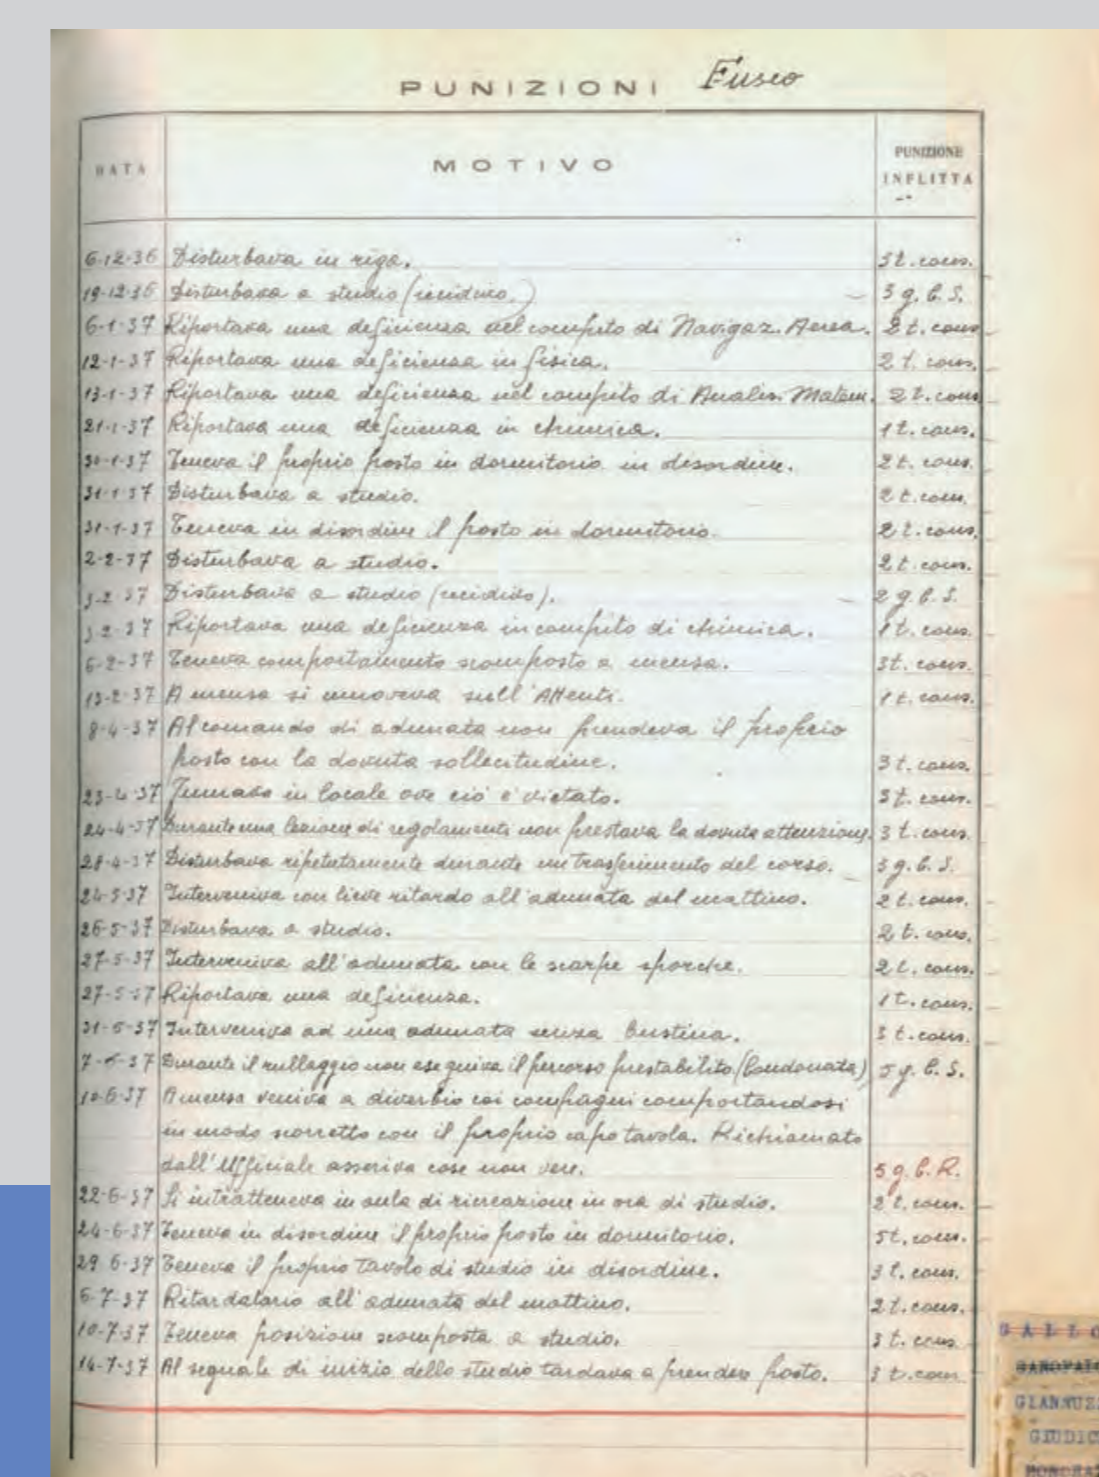 PUNIZIONI Fusco
DATA MOTIVO PUNIZIONE
INFLITTA
6-12-36 Disturbava in riga. 3 t. cons.
19-12-36 Disturbava a studio (recidivo.) 3 g. C. S.
6-1-37 Riportava una deficienza nel compito di Navigaz. Aerea. 2 t. cons
12-1-37 Riportava una deficienza in fisica. 2 t. cons.
13-1-37 Riportava una deficienza nel compito di Analisi Matem. 2 t. cons
21-1-37 Riportava una deficienza in chimica. 1 t. cons.
30-1-37 Teneva il proprio posto in dormitorio in disordine. 2 t. cons.
31-1-37 Disturbava a studio. 2 t. cons.
31-1-37 Teneva in disordine il posto in dormitorio. 2 t. cons.
2-2-37 Disturbava a studio. 2 t. cons.
3-2-37 Disturbava a studio (recidivo). 2 g. C. S.
3-2-37 Riportava una deficienza in compito di chimica. 1 t. cons.
6-2-37 Teneva comportamento scomposto a mensa. 3 t. cons.
13-2-37 A mensa si muoveva sull'Attenti. 1 t. cons.
8-4-37 Al comando di adunata non prendeva il proprio
posto con la dovuta sollecitudine. 3 t. cons.
23-4-37 Fumava in locale ove ciò è vietato. 3 t. cons.
24-4-37 Durante una lezione di regolamenti non prestava la dovuta attenzione. 3 t. cons.
28-4-37 Disturbava ripetutamente durante un trasferimento del corso. 3 g. C. S.
24-5-37 Interveniva con lieve ritardo all'adunata del mattino. 2 t. cons.
26-5-37 Disturbava a studio. 2 t. cons.
27-5-37 Interveniva all'adunata con le scarpe sporche. 2 t. cons.
27-5-37 Riportava una deficienza. 1 t. cons.
31-5-37 Interveniva ad una adunata senza bustina. 3 t. cons.
7-6-37 Durante il rullaggio non eseguiva il percorso prestabilito (Condonata) 5 g. C. S.
10-6-37 A mensa veniva a diverbio coi compagni comportandosi
in modo scorretto con il proprio capo tavola. Richiamato
dall'Ufficiale asseriva cose non vere. 5 g. C. R.
22-6-37 Si intratteneva in aula di ricreazione in ora di studio. 2 t. cons.
24-6-37 Teneva in disordine il proprio posto in dormitorio. 5 t. cons.
29-6-37 Teneva il proprio tavolo di studio in disordine. 3 t. cons.
6-7-37 Ritardatario all'adunata del mattino. 2 t. cons.
10-7-37 Teneva posizione scomposta a studio. 3 t. cons
14-7-37 Al segnale di inizio dello studio tardava a prender posto. 3 t. cons
GALLO
GAROFALO
GIANNUZZ
GIUDIC